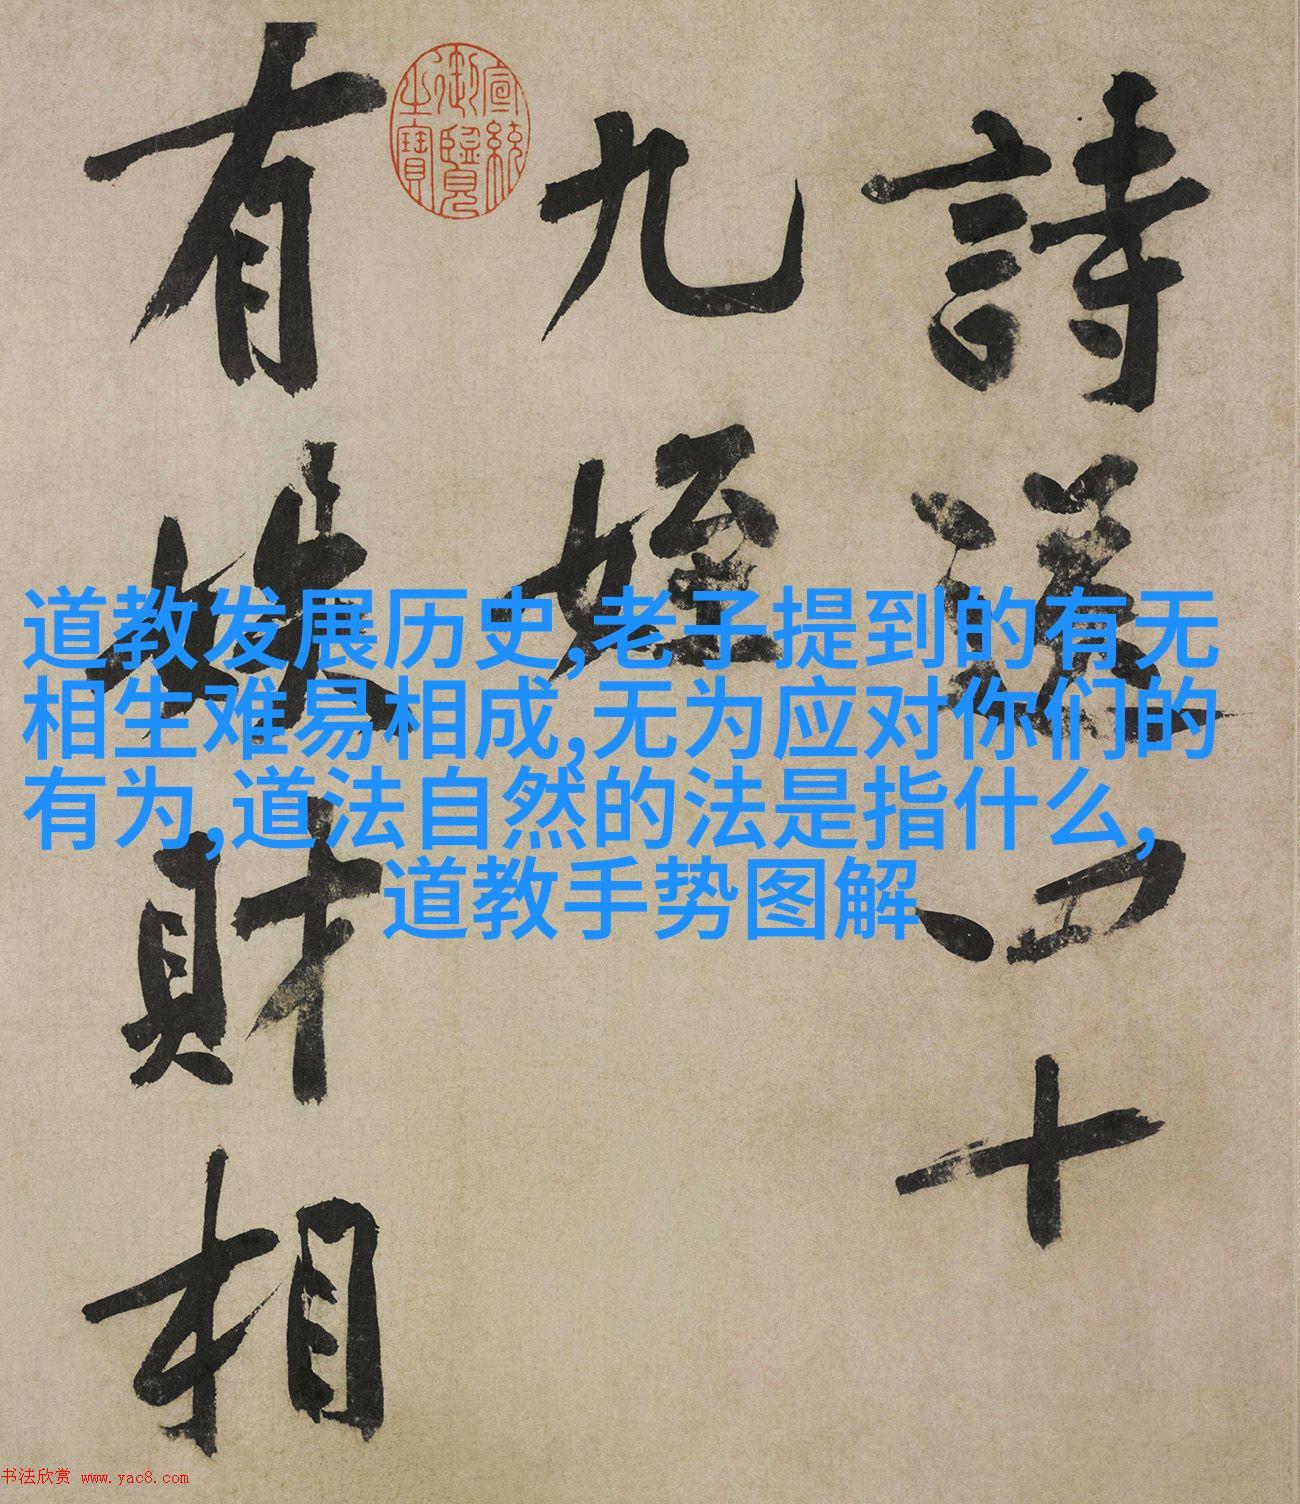 詩送四十
九姪
有
財相
宣統
御覽
之寶
道教发展历史,老子提到的有无
相生难易相成,无为应对你们的
有为,道法自然的法是指什么,
道教手势图解
书法欣赏 www.yac8.com